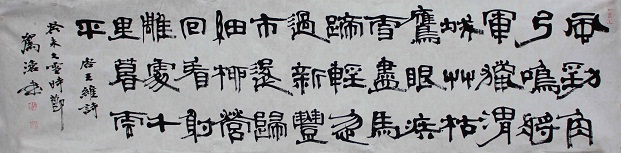 風勁角
弓鳴將
軍獵渭
城艸枯
鷹眼疾
雪盡馬
蹄輕忽
過新豐
市還歸
細柳營
回看射
雕處千
里暮雲
平
唐王維詩